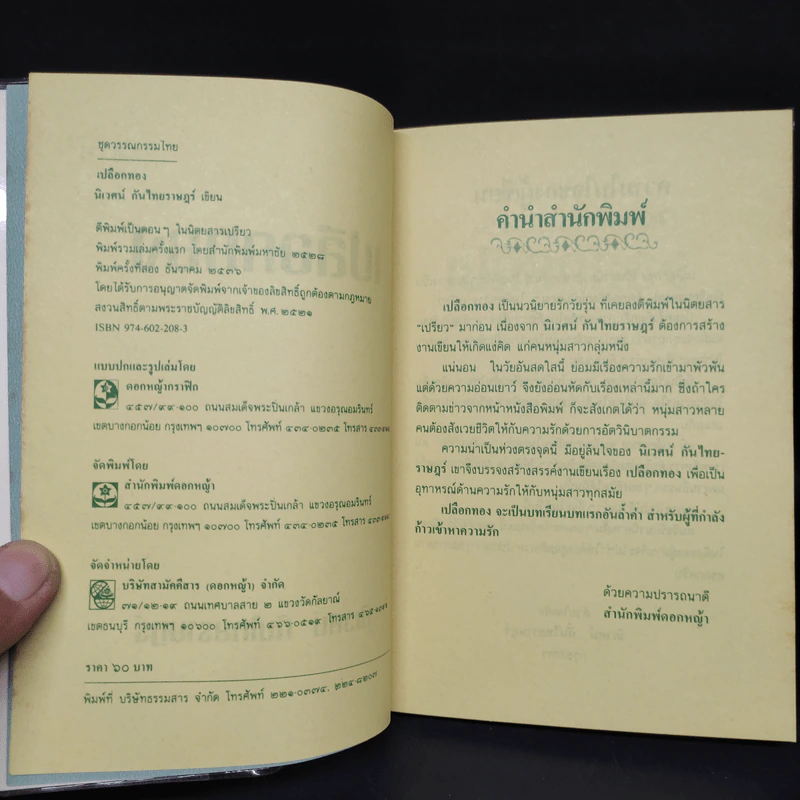 ชุดวรรณกรรมไทย
เปลือกทอง
นิเวศน์ กันไทยราษฎร์ เขียน
ตีพิมพ์เป็นตอนๆ ในนิตยสารเปรียว
พิมพ์รวมเล่มครั้งแรก โดยสำนักพิมพ์มหาชัย ๒๕๒๘
พิมพ์ครั้งที่สอง ธันวาคม ๒๕๓๖
โดยได้รับการอนุญาตจัดพิมพ์จากเจ้าของลิขสิทธิ์ถูกต้องตามกฎหมาย
สงวนสิทธิ์ตามพระราชบัญญัติลิขสิทธิ์ พ.ศ. ๒๕๒๑
ISBN 974-602-208-3
แบบปกและรูปเล่มโดย
ดอกหญ้ากราฟิก
๔๕๗/๙๙-๑๐๐ ถนนสมเด็จพระปิ่นเกล้า แขวงอรุณอมรินทร์
เขตบางกอกน้อย กรุงเทพฯ ๑๐๗๐๐ โทรศัพท์ ๔๓๔-๐๒๓๕ โทรสาร
จัดพิมพ์โดย
สำนักพิมพ์ดอกหญ้า
๔๕๗/๙๙-๑๐๐ ถนนสมเด็จพระปิ่นเกล้า แขวงอรุณอมรินทร์
เขตบางกอกน้อย กรุงเทพฯ ๑๐๗๐๐ โทรศัพท์ ๔๓๔-๐๒๓๕ โทรสาร
จัดจำหน่ายโดย
บริษัทสามัคคีสาร (ดอกหญ้า) จำกัด
๗๑/๑๒-๑๙ ถนนเทศบาลสาย ๒ แขวงวัดกัลยาณ์
เขตธนบุรี กรุงเทพฯ ๑๐๖๐๐ โทรศัพท์ ๔๖๖-๐๕๑๙ โทรสาร
ราคา ๖๐ บาท
พิมพ์ที่ บริษัทธรรมสาร จำกัด โทรศัพท์ ๒๒๑-๐๓๗๔,
คำนำสำนักพิมพ์
เปลือกทอง เป็นนวนิยายรักวัยรุ่น ที่เคยลงตีพิมพ์ในนิตยสาร
"เปรียว" มาก่อน เนื่องจาก นิเวศน์ กันไทยราษฎร์ ต้องการสร้าง
งานเขียนให้เกิดแง่คิด แก่คนหนุ่มสาวกลุ่มหนึ่ง
แน่นอน ในวัยอันสดใสนี้ ย่อมมีเรื่องความรักเข้ามาพัวพัน
แต่ด้วยความอ่อนเยาว์ จึงยังอ่อนหัดกับเรื่องเหล่านี้มาก ซึ่งถ้าใคร
ติดตามข่าวจากหน้าหนังสือพิมพ์ ก็จะสังเกตได้ว่า หนุ่มสาวหลาย
คนต้องสังเวยชีวิตให้กับความรักด้วยการอัตวินิบาตกรรม
ความน่าเป็นห่วงตรงจุดนี้ มีอยู่ล้นใจของ นิเวศน์ กันไทย-
ราษฎร์ เขาจึงบรรจงสร้างสรรค์งานเขียนเรื่อง เปลือกทอง เพื่อเป็น
อุทาหรณ์ด้านความรักให้กับหนุ่มสาวทุกสมัย
เปลือกทอง จะเป็นบทเรียนบทแรกอันล้ำค่า สำหรับผู้ที่กำลัง
ก้าวเข้าหาความรัก
ด้วยความปรารถนาดี
สำนักพิมพ์ดอกหญ้า